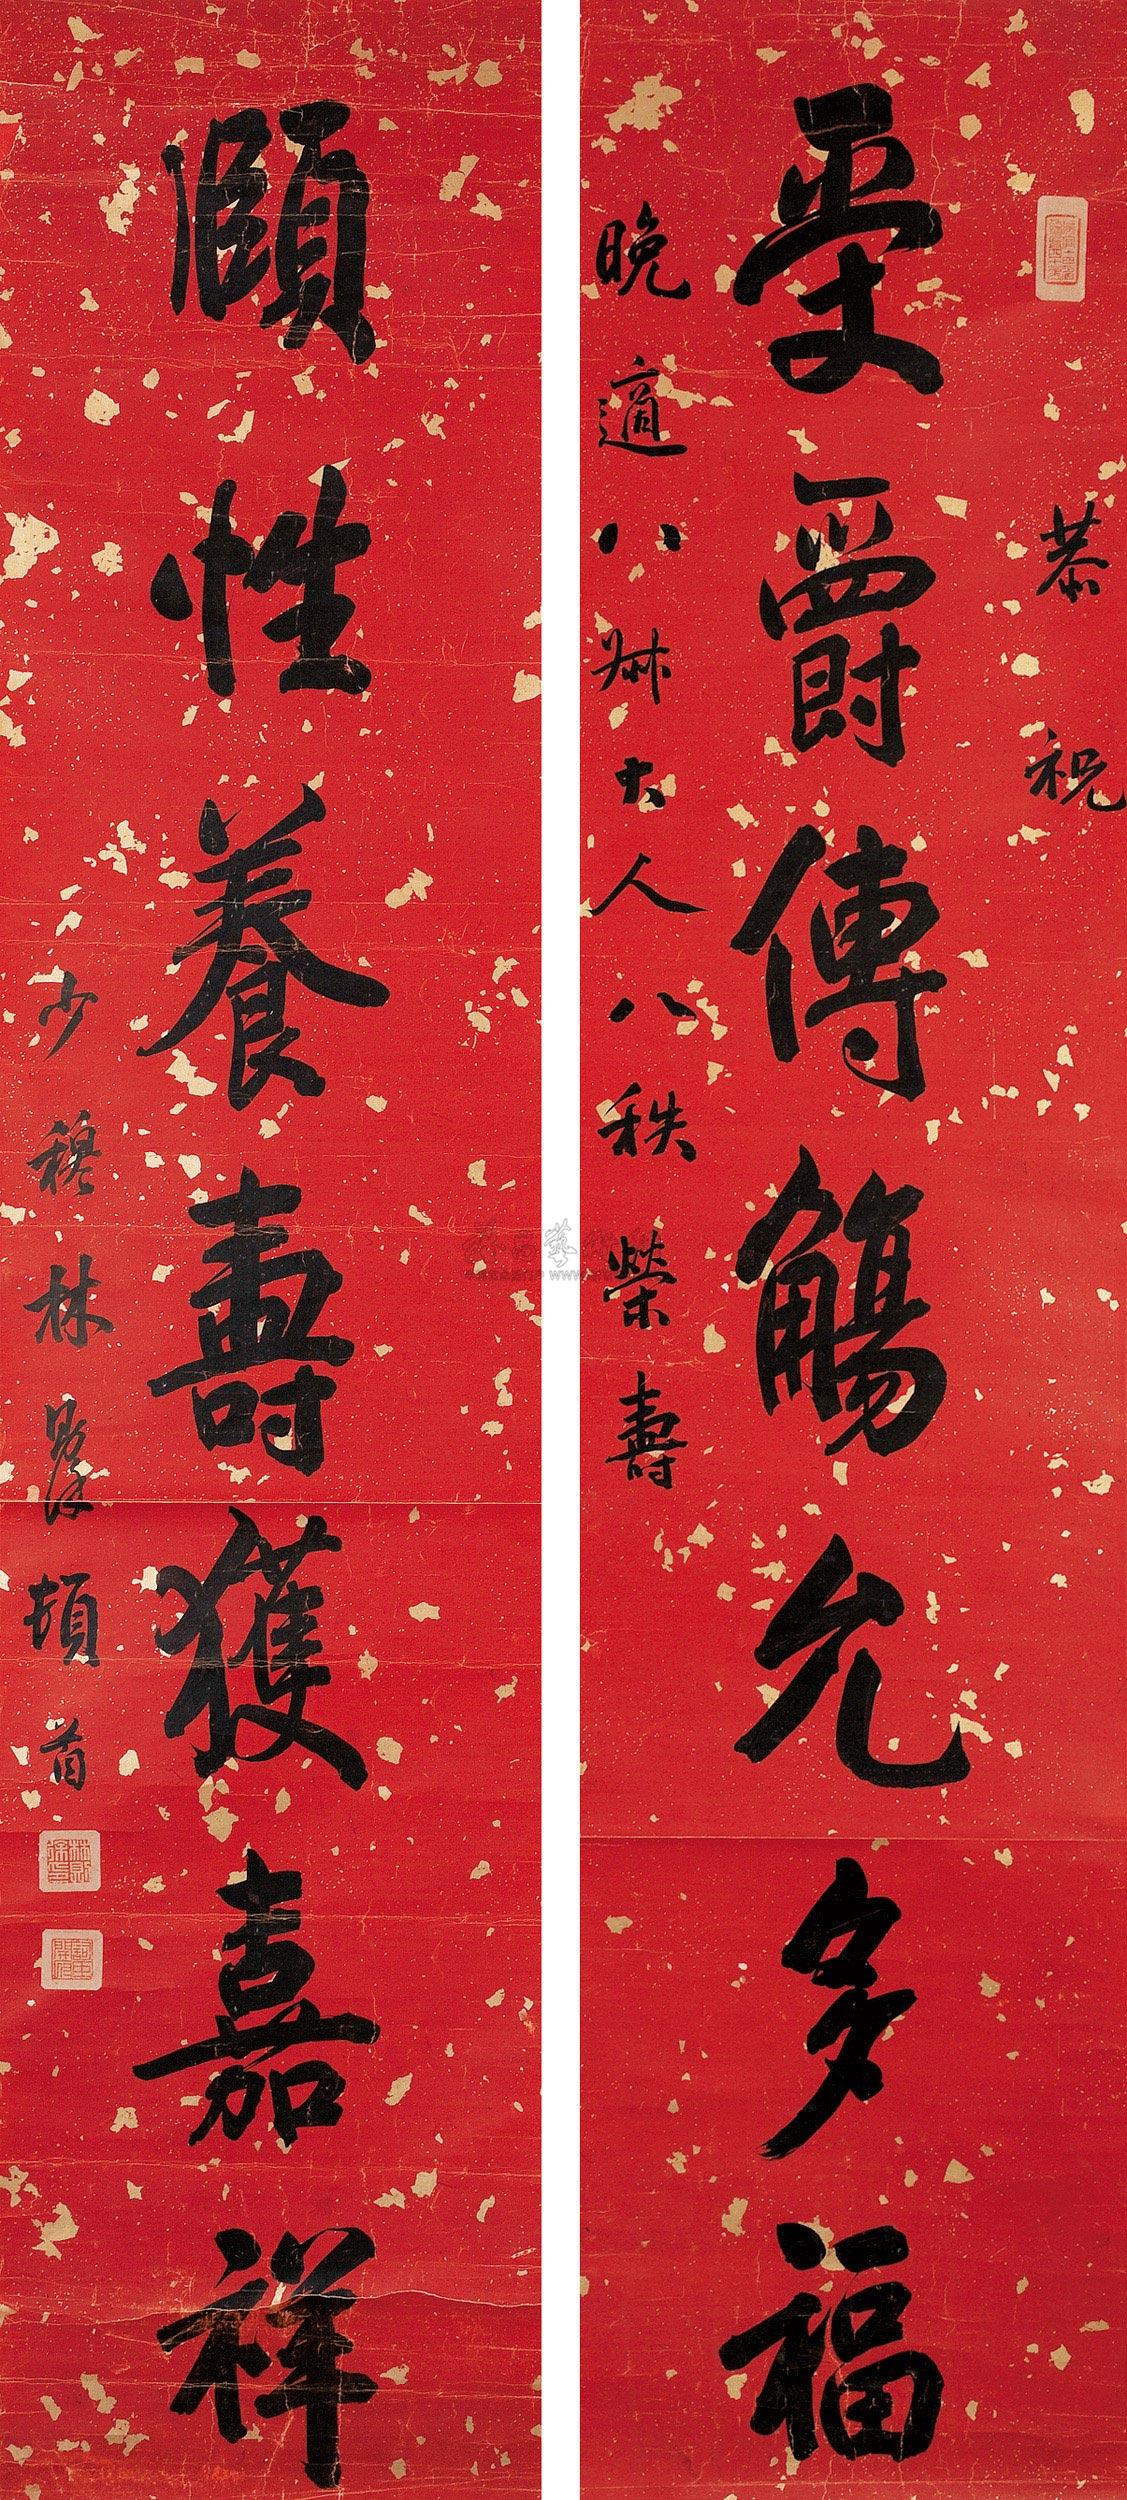 恭祝
受爵傳觴允多福
晚適八叔大人八秩榮壽
頤性養壽獲嘉祥
少穆林則徐頓首
林則徐印